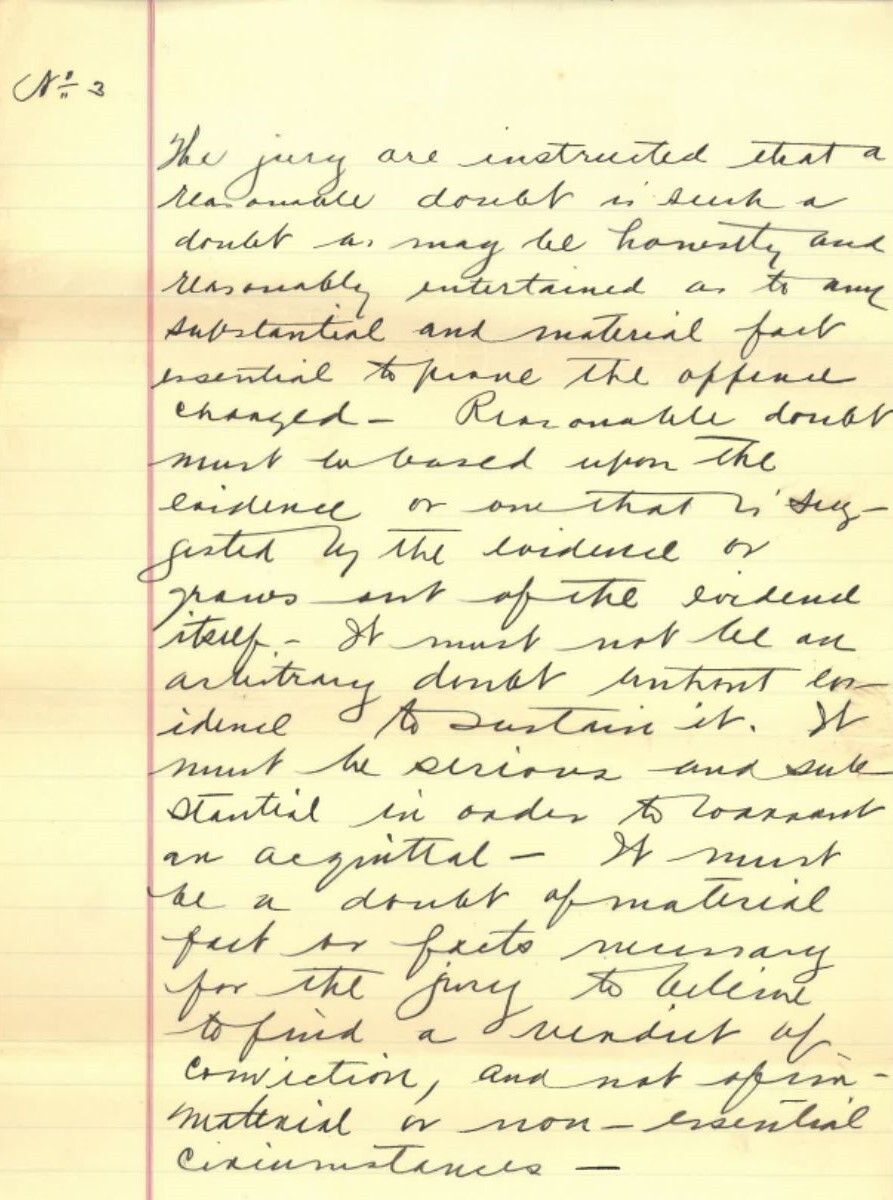 No. 3
The jury are instructed that a
reasonable doubt is such a
doubt as may be honestly and
reasonably entertained as to any
substantial and material fact
essential to prove the offence
charged – Reasonable doubt
must be based upon the
evidence or one that is sug-
gested by the evidence or
grows out of the evidence
itself – It must not be an
arbitrary doubt without ev-
idence to sustain it. It
must be serious and sub-
stantial in order to warrant
an acquittal – It must
be a doubt of material
fact or facts necessary
for the jury to believe
to find a verdict of
conviction, and not of im-
material or non-essential
circumstances –